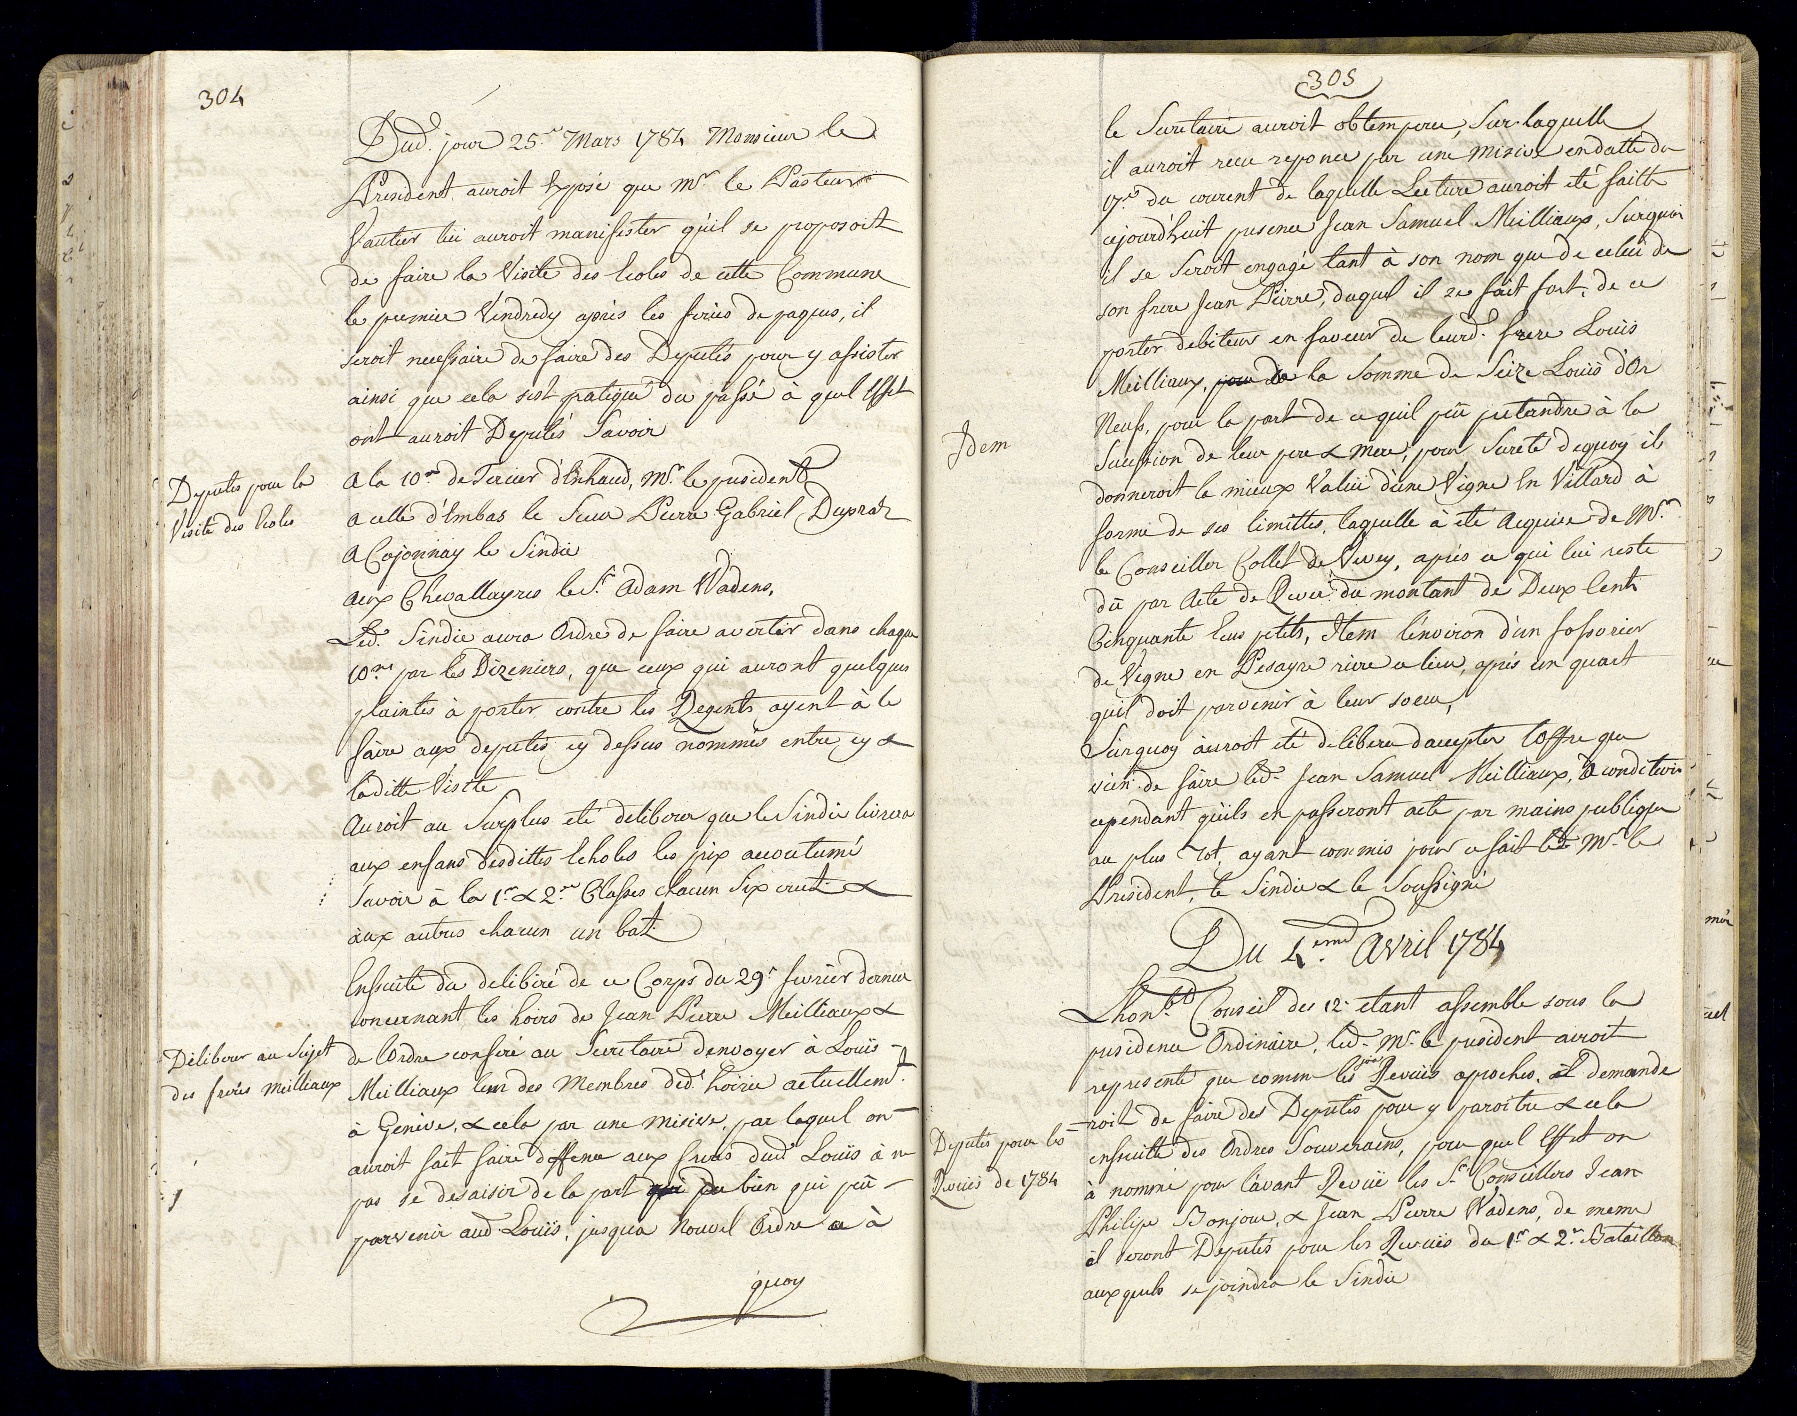 304
Dud. jour 25.e Mars 1784 Monsieur le
President auroit Exposé que Mr le Pasteur
Vautier lui auroit manifester qu'il se proposoit
de faire la Visite des Ecoles de cette Commune
le premier Vendredy après les feries de paques, il
seroit necessaire de faire des Deputés pour y assister
ainsi que cela sest pratiqué du passé à quel Effet
ont auroit Deputés Savoir
Deputés pour la
Visite des Ecoles
A la 10ne de Tercier d'Enhaud, Mr. le president
a celle d'Embas le Sieur Pierre Gabriel Dupraz
A Cojonnay le Sindic
aux Chevallayres le Sr. Adam Wadens,
Led. Sindic aura Ordre de faire avertir dans chaque
10ne par les Dizeniers, que ceux qui auront quelques
plaintes à porter contre les Regents ayent à le
faire aux deputés cy dessus nommés entre cy &
laditte Visite
Auroit au Surplus eté deliberer que le Sindic livrera
aux enfans desdittes Echoles les prix accoutumé
Savoir à la 1re & 2e Classes chacun Six crut. &
aux autres chacun un bat.
Ensuite du deliberé de ce Corps du 29e fevrier dernier
concernant les hoirs de Jean Pierre Meilliaux &
Deliberer au Sujet
des freres Meilliaux
de l'Ordre conferé au Secretaire d'envoyer à Louis
Meilliaux l'un des Membres de d. hoirie actuellemt.
à Genève, & cela par une Misive, par laquel on
auroit fait faire deffence aux freres dud. Louïs à ne
pas se desaisir de la part du bien qui peû
parvenir aud. Louïs, jusqua Nouvel Ordre a à
quoy
305
le Secretaire auroit obtemperer, Sur laquelle
il auroit recu reponce par une misive en datte du
17e du courent de laquelle Lecture auroit eté faitte
cejourdhuit presence Jean Samuel Meilliaux, Surquoi
il se Seroit engagé tant à son nom que de celui de
son frere Jean Pierre, duquel il se fait fort, de ce
porter debiteur en faveur de leurd. frere Louïs
Meilliaux, la Somme de Seize Louïs d'Or
Neufs, pour la part de ce quil peû pretandre à la
Idem
Succession de leur pere & Mere, pour Sureté dequoy ils
donneroit le mieux Valüe d'une Vigne En Villard à
forme de ses limittes, laquelle à eté Acquise de Mr.
le Conseiller Collet de Vevey, après ce qui lui reste
dû par Acte de Revers du montant de Deux Cents
Cinquante Ecus petits, Item l'environ d'un fossorier
de Vigne en Pesayre riere ce lieu, après un quart
quil doit parvenir à leur soeur,
Surquoy auroit eté deliberer daccepter l'Offre que
vien de faire led. Jean Samuel Meilliaux, à condition
cependant quils en passeront acte par mains publique
au plus Tot, ayant commis pour ce fait Mr. le
President, le Sindic & le Soussigné
Du 4.eme Avril 1784
Lhon.ble Conseil des 12. etant assemblé sous la
presidence Ordinaire, led. Mr. le president auroit
representé que comme les Revües aproches, il demande
roit de faire des Deputés pour y paroitre & cela
Deputés pour les
Revües de 1784
ensuitte des Ordres Souverains, pour quel Effet on
à nommé pour l'avant Revüe les Sr. Conseillers Jean
Philipe Bonjour, & Jean Pierre Wadens, de meme
il seront Deputés pour les Revües du 1er & 2e Bataillon
auxquels se joindra le Sindic